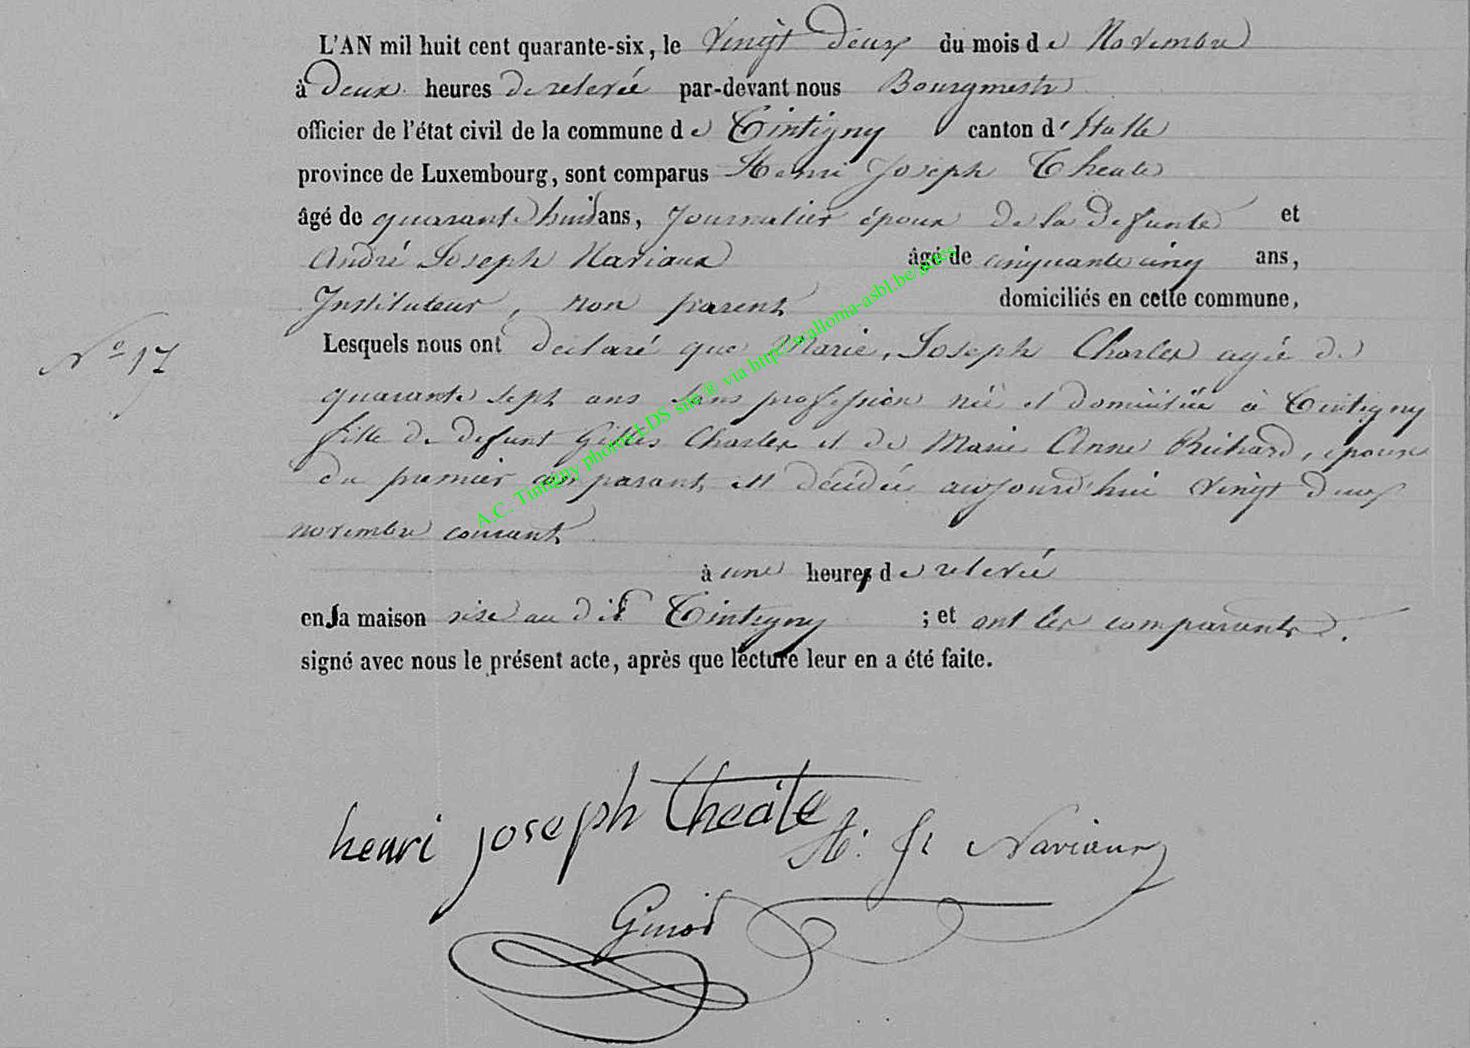 L'AN mil huit cent quarante-six, le Vingt deux du mois de Novembre
à deux heures de relevée par-devant nous Bourgmestre
officier de l'état civil de la commune de Tintigny canton d'Etalle
province de Luxembourg, sont comparus Henri Joseph Theate
âgé de quarante huit ans, Journalier époux de la defunte et
André Joseph Naviaux âgé de cinquante cinq ans,
Instituteur, non parent domiciliés en cette commune,
Lesquels nous ont declaré que Marie, Joseph Charlex agée de
N° 17
quarante sept ans sans profession née et domiciliée à Tintigny
fille de defunt Gilles Charlex et de Marie Anne Richard, épouse
du premier comparant, est décédée aujourd'hui vingt deux
novembre courant
à une heures de relevée
en la maison sise au dit Tintigny ; et ont les comparents
signé avec nous le présent acte, après que lecture leur en a été faite.
henri joseph theate
A. J. Naviaux
A.C. Tintigny photos LDS site ® via http://wallonia-asbl.be/actes